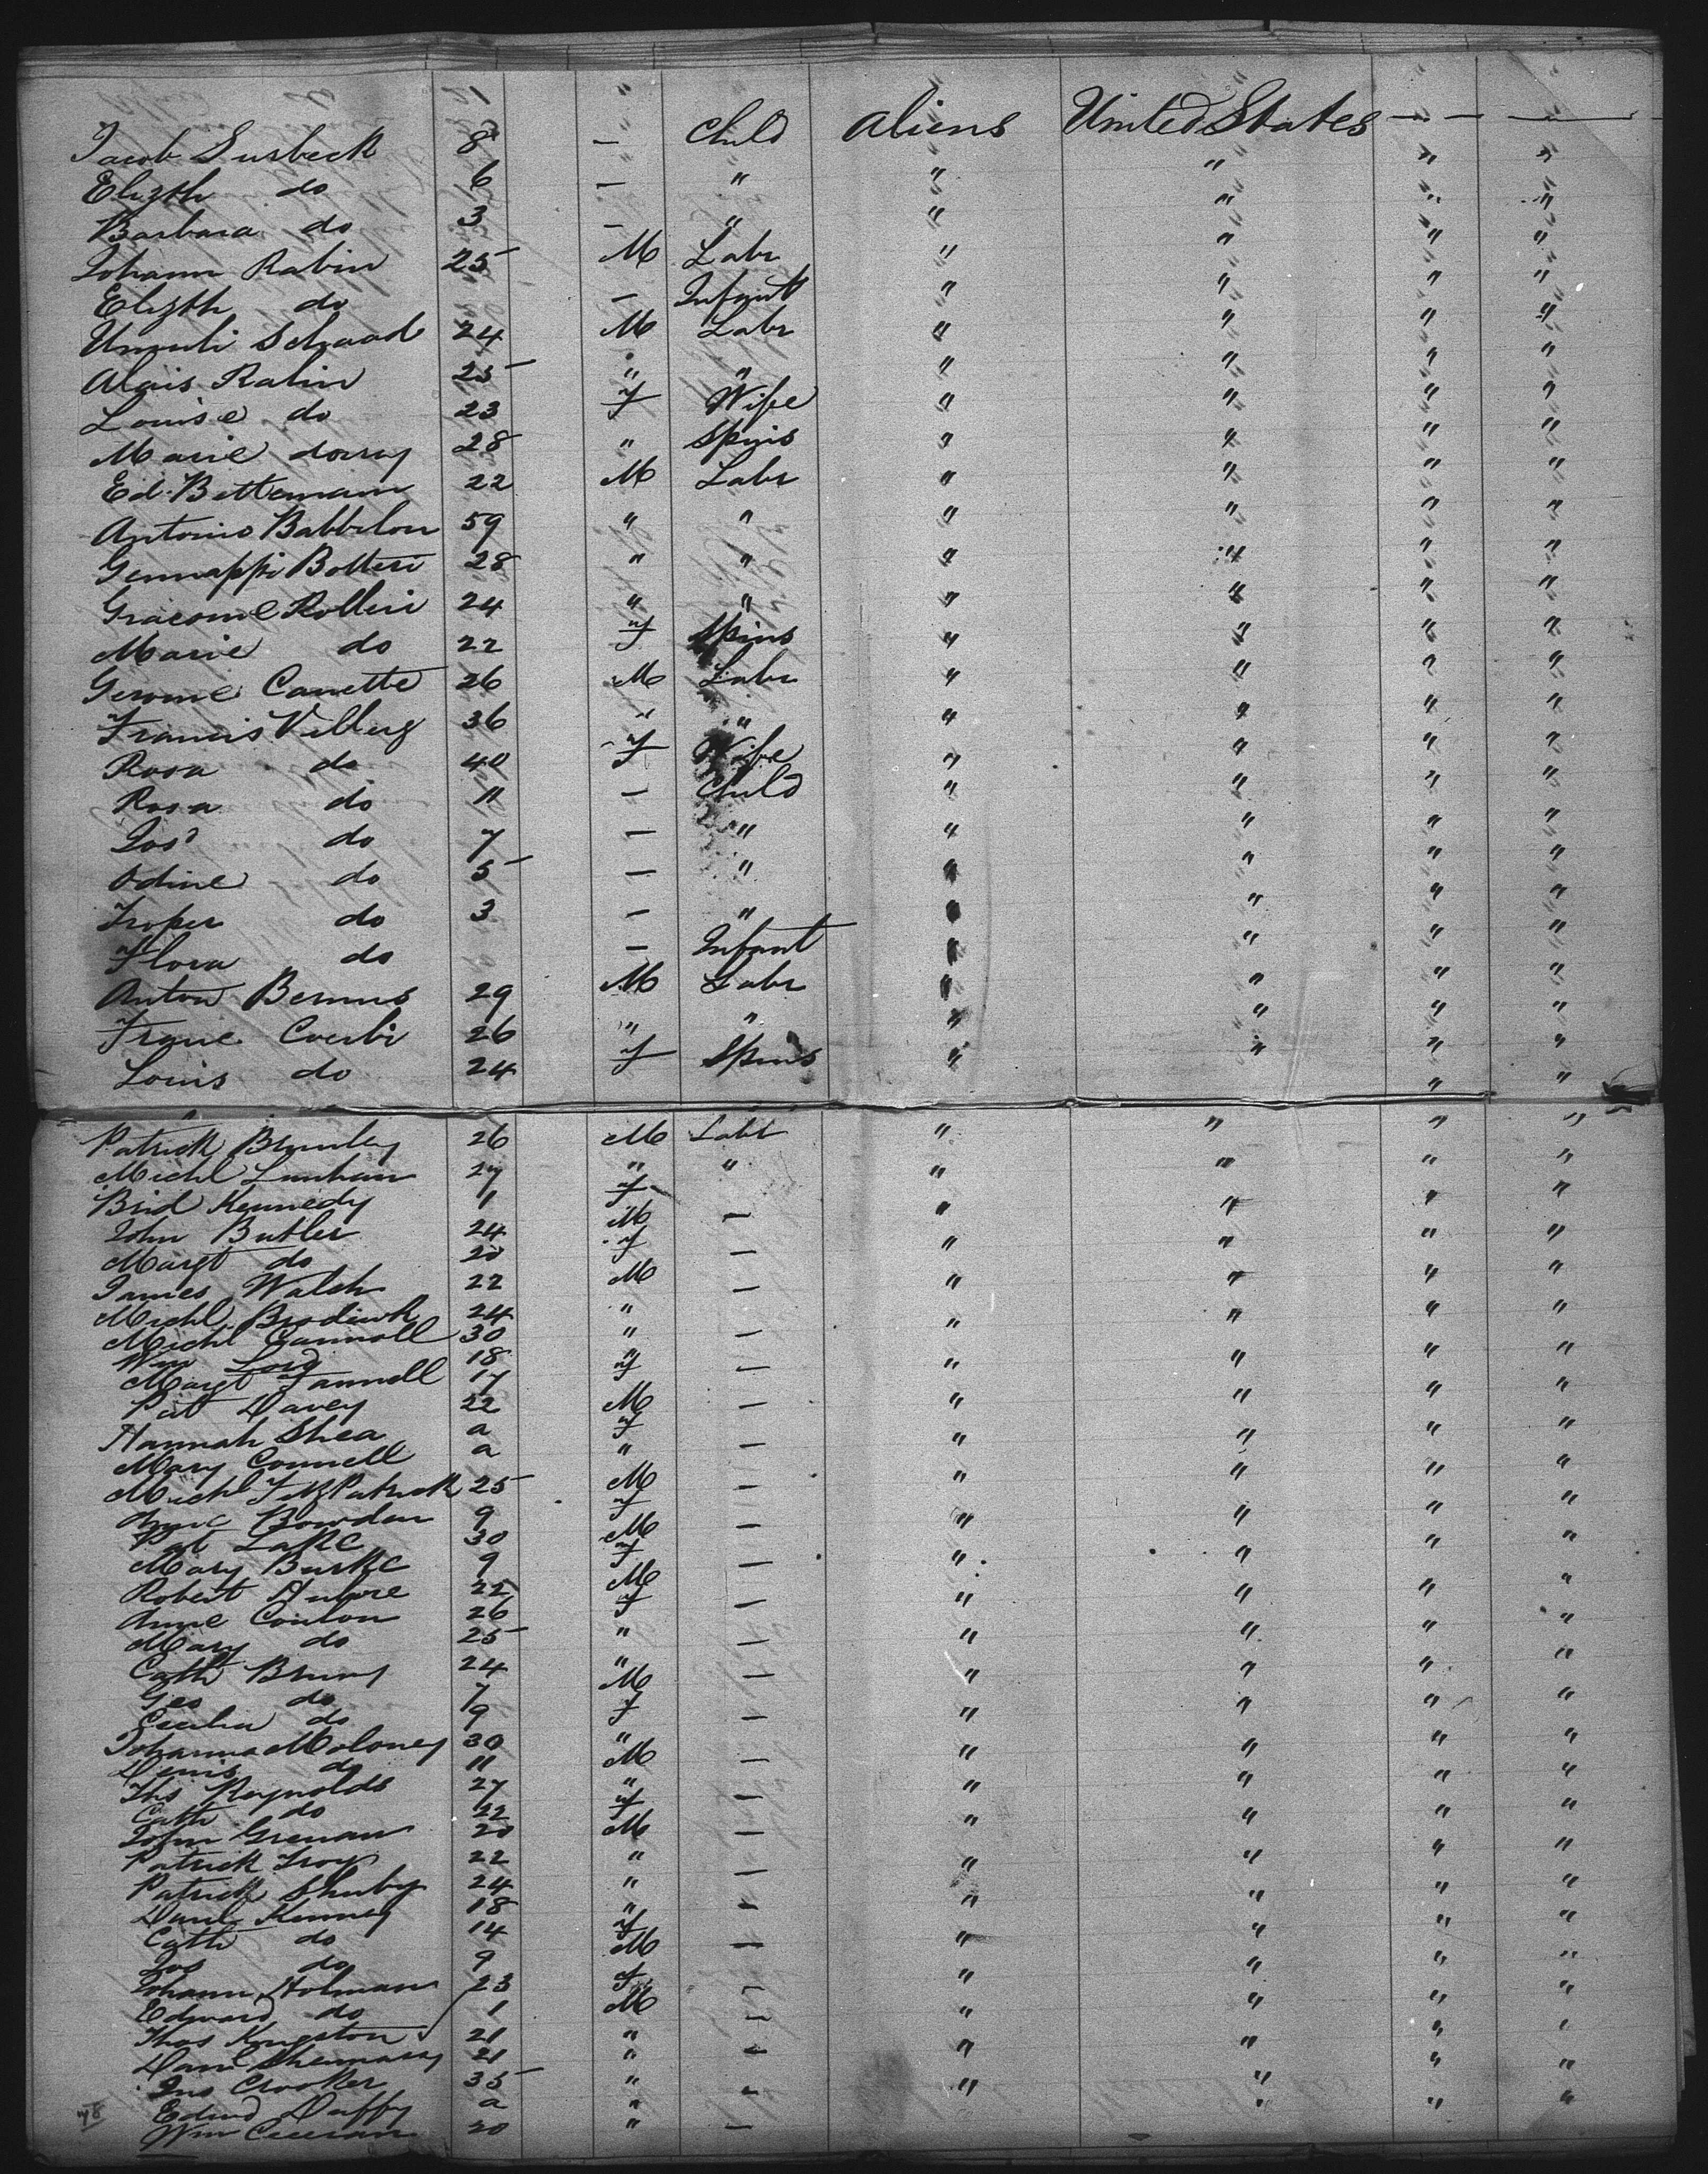 Jacob Susbeck 8 — Child Aliens United States — —
Elizth do 6 — " " " " "
Barbara do 3 — " " " " "
Johann Rabin 25 M Labr " " " "
Elizth do — Infant " " " "
Schaad 24 M Labr " " " "
Alois Rabin 25 " " " " " "
Louise do 23 f Wife " " " "
Marie 28 " Spins " " " "
Ed. Bettemann 22 M Labr " " " "
Antonio Babbilon 59 " " " " " "
Gennappi Botteri 28 " " " " " "
Giacome Rolleri 24 " " " " " "
Marie do 22 f Spins " " " "
Gerome Canette 26 M Labr " " " "
Francis Villerg 36 " " " " " "
Rosa do 40 f Wife " " " "
Rosa do 11 — Child " " " "
Jos do 7 — " " " " "
Odine do 5 — " " " " "
do 3 — " " " " "
Flora do — Infant " " " "
Anton Bernus 29 M Labr " " " "
Coerbi 26 " " " " " "
Louis do 24 f Spins " " " "
Patrick Brinley 26 M Labr " " " "
Michl Lanham 27 " " " " " "
Brid Kennedy 1 f — " " " "
John Butler 24 M — " " " "
Margt do 20 f — " " " "
James Walch 22 M — " " " "
Michl Brodiwk 24 " — " " " "
Michl Cannoll 30 " — " " " "
Wm Lord 18 " — " " " "
Margt Fannell 17 f — " " " "
Pat Davey 22 M — " " " "
Hannah Shea a f — " " " "
Mary Connell a " — " " " "
Michl FitzPatrick 25 M — " " " "
Anne Bowden 9 f — " " " "
Pat Lake 30 M — " " " "
Mary Burke 9 f — " " " "
Robert 22 M — " " " "
Anne Conlon 26 f — " " " "
Mary do 25 " — " " " "
Cath 24 " — " " " "
Geo do 7 M — " " " "
Cecelia do 9 f — " " " "
Johanna Moloney 30 " — " " " "
Denis do 11 M — " " " "
Ths Reynolds 27 " — " " " "
Cath do 22 f — " " " "
John Grenan 20 M — " " " "
Patrick Troy 22 " — " " " "
Patrick Shuby 24 " — " " " "
Danl Kinney 18 " — " " " "
Cath do 14 f — " " " "
Jos do 9 M — " " " "
Johann Holman 23 f — " " " "
Edward do 1 M — " " " "
Thos Kingston 21 " — " " " "
Danl 21 " — " " " "
Jno Crooker 35 " — " " " "
Edwd Duffy a "
Wm 20 " —
78